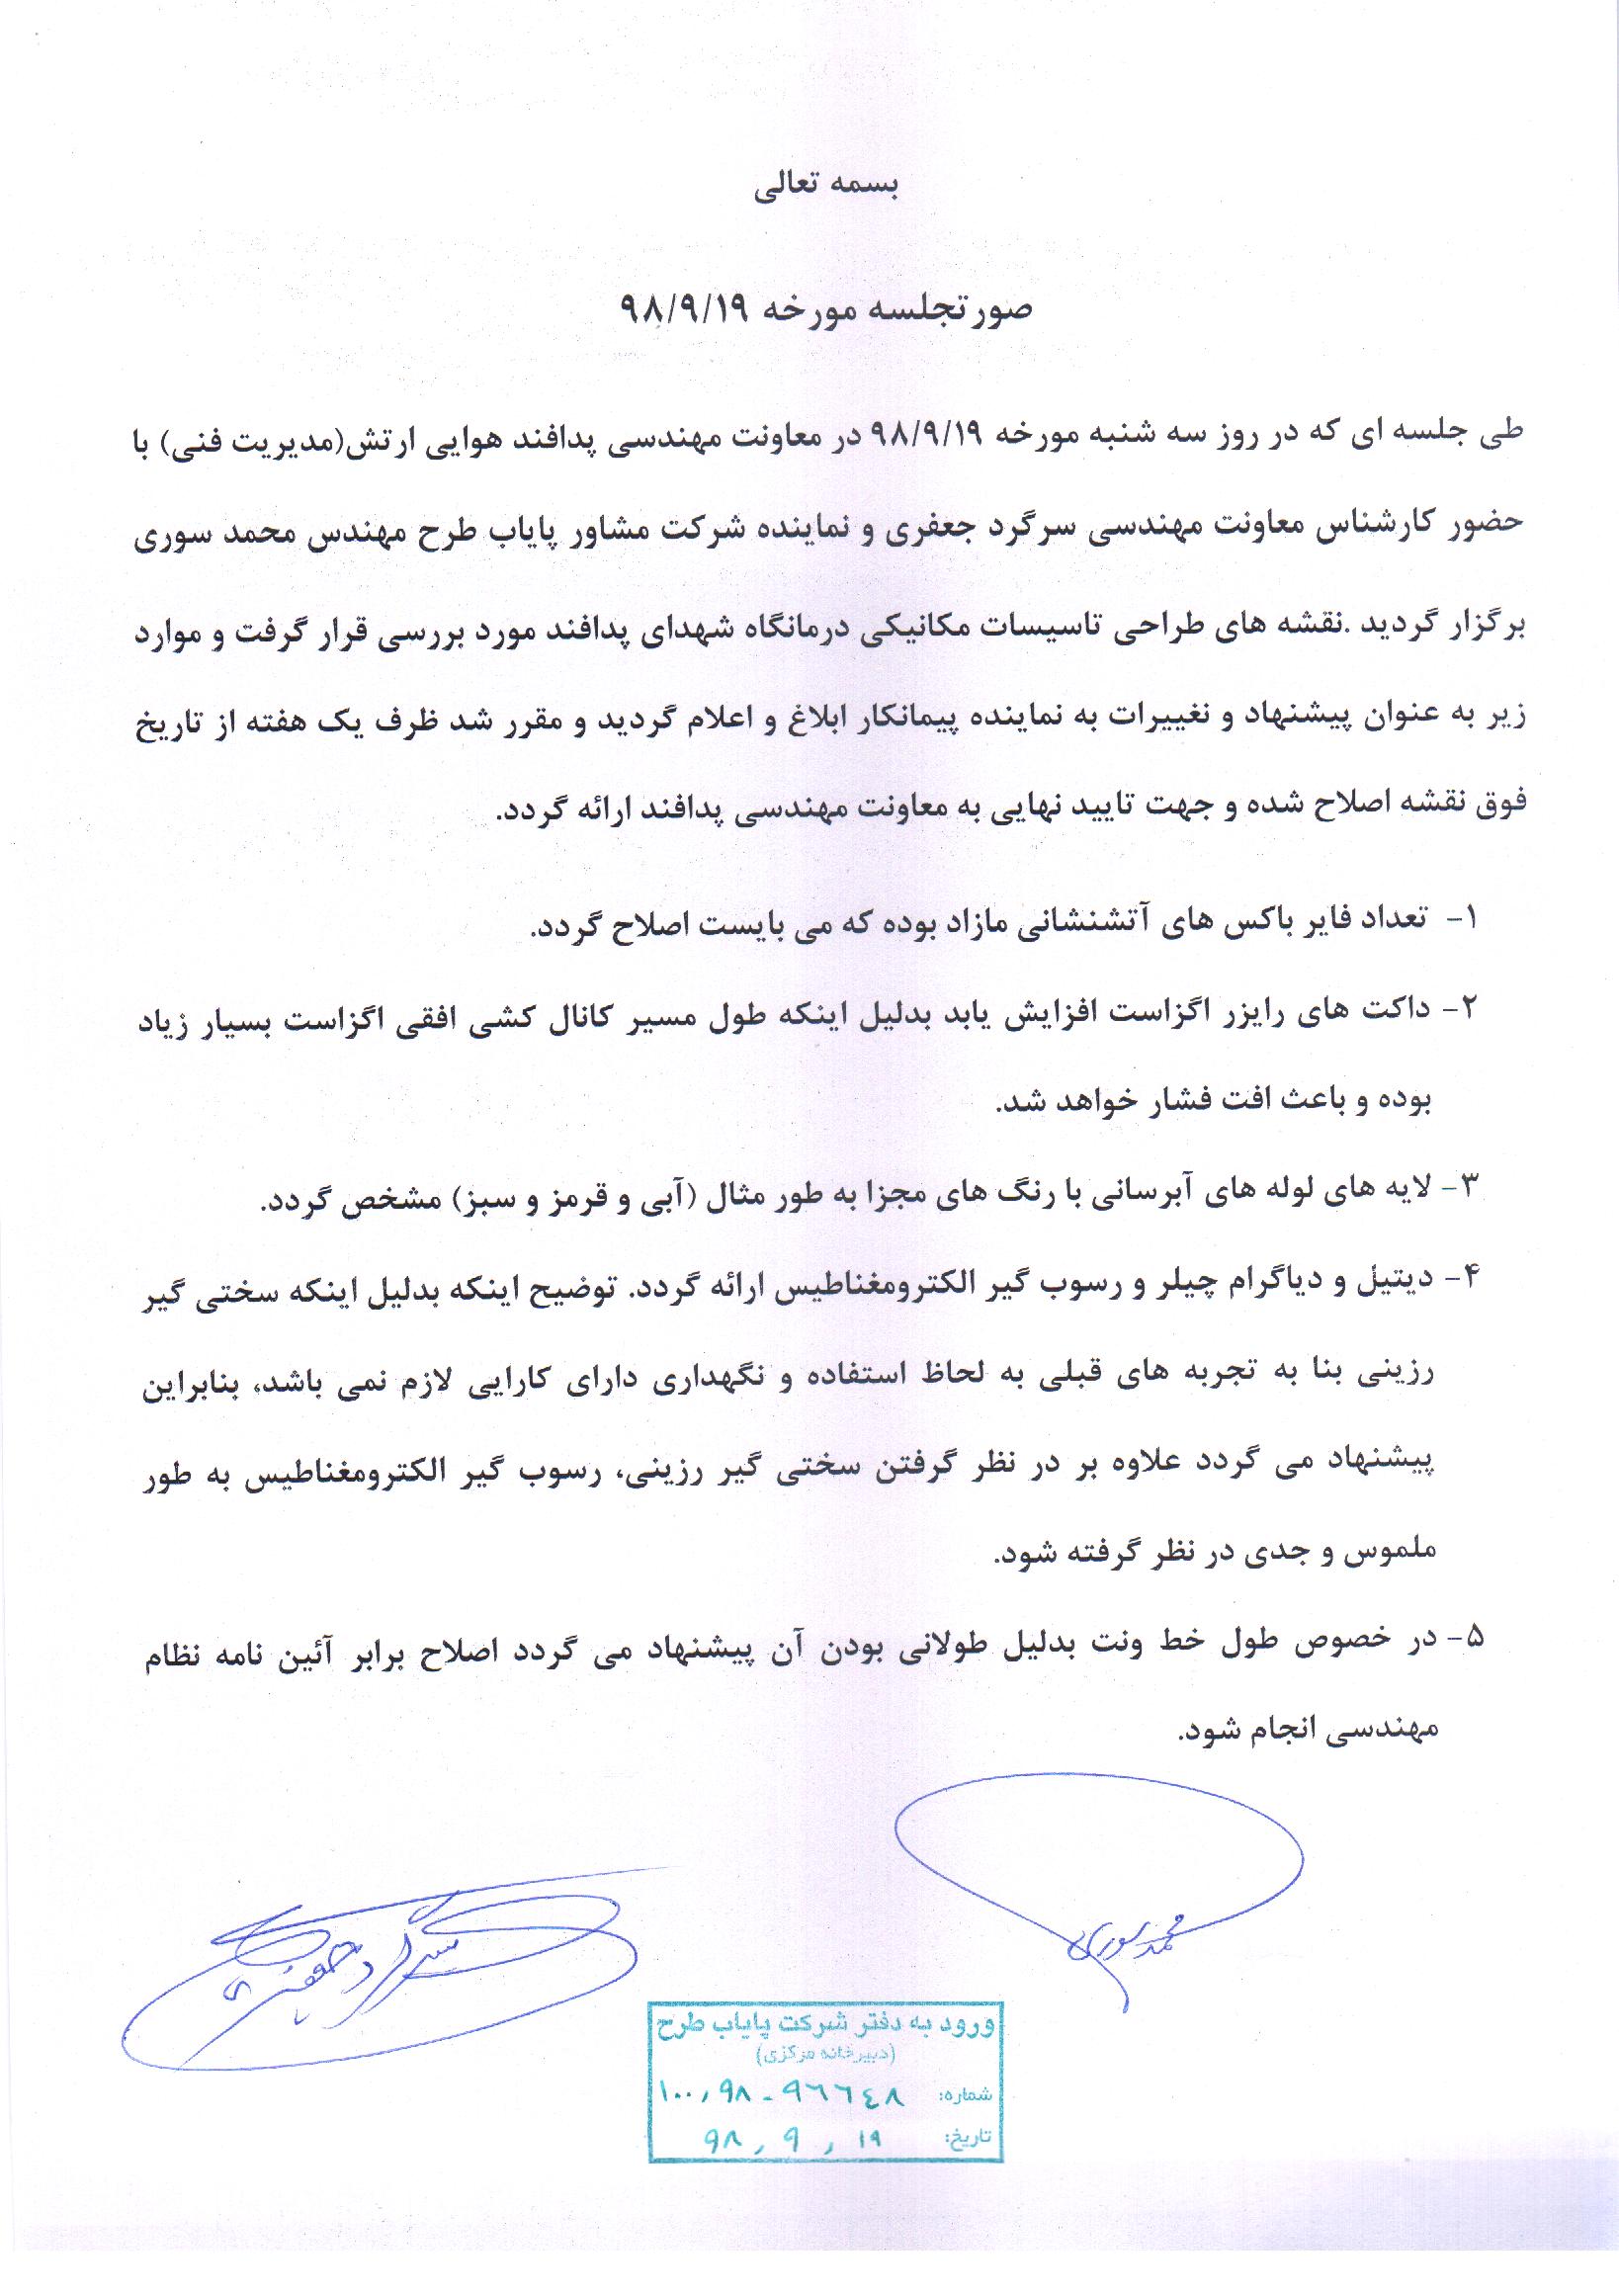 بسمه تعالی
صورتجلسه مورخه ۹۸/۹/۱۹
طی جلسه ای که در روز سه شنبه مورخه ۹۸/۹/۱۹ در معاونت مهندسی پدافند هوایی ارتش(مدیریت فنی) با
حضور کارشناس معاونت مهندسی سرگرد جعفری و نماینده شرکت مشاور پایاب طرح مهندس محمد سوری
برگزار گردید .نقشه های طراحی تاسیسات مکانیکی درمانگاه شهدای پدافند مورد بررسی قرار گرفت و موارد
زیر به عنوان پیشنهاد و تغییرات به نماینده پیمانکار ابلاغ و اعلام گردید و مقرر شد ظرف یک هفته از تاریخ
فوق نقشه اصلاح شده و جهت تایید نهایی به معاونت مهندسی پدافند ارائه گردد.
۱- تعداد فایر باکس های آتشنشانی مازاد بوده که می بایست اصلاح گردد.
۲- داکت های رایزر اگزاست افزایش یابد بدلیل اینکه طول مسیر کانال کشی افقی اگزاست بسیار زیاد
بوده و باعث افت فشار خواهد شد.
۳- لایه های لوله های آبرسانی با رنگ های مجزا به طور مثال (آبی و قرمز و سبز) مشخص گردد.
۴- دیتیل و دیاگرام چیلر و رسوب گیر الکترومغناطیس ارائه گردد. توضیح اینکه بدلیل اینکه سختی گیر
رزینی بنا به تجربه های قبلی به لحاظ استفاده و نگهداری دارای کارایی لازم نمی باشد، بنابراین
پیشنهاد می گردد علاوه بر در نظر گرفتن سختی گیر رزینی، رسوب گیر الکترومغناطیس به طور
ملموس و جدی در نظر گرفته شود.
۵- در خصوص طول خط ونت بدلیل طولانی بودن آن پیشنهاد می گردد اصلاح برابر آئین نامه نظام
مهندسی انجام شود.
محمد سوری
سرگرد جعفری
ورود به دفتر شرکت پایاب طرح
(دبیرخانه مرکزی)
شماره: ۱۰۰,۹۸-۹۶۶۴۸
تاریخ: ۹۸,۹,۱۹